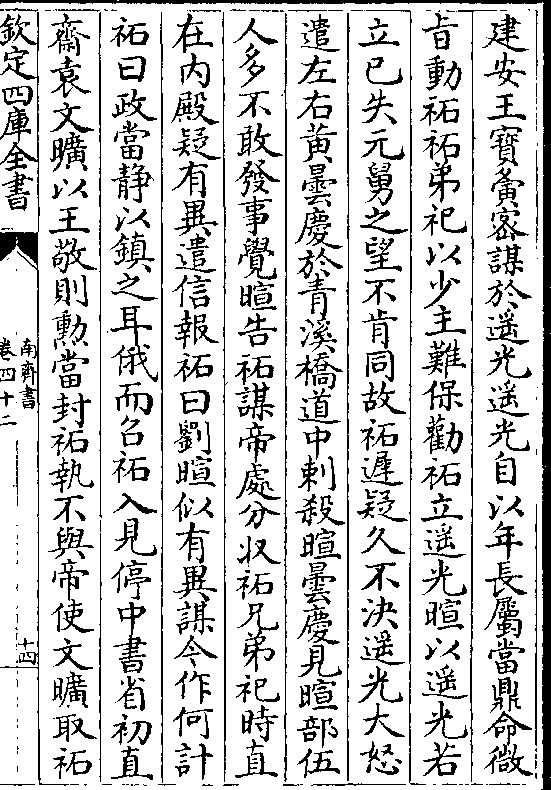 建安王寶夤密謀於遥光遥光自以年長屬當鼎命微
旨動祏祏弟祀以少主難保勸祏立遥光暄以遥光若
立已失元舅之望不肯同故祏遲疑久不決遥光大怒
遣左右黃曇慶於青溪橋道中刺殺暄曇慶見暄部伍
人多不敢發事覺暄告祏謀帝處分收祏兄弟祀時直
在内殿疑有異遣信報祏曰劉暄似有異謀今作何計
祏曰政當静以鎮之耳俄而召祏入見停中書省初直
齋袁文曠以王敬則勲當封祏執不與帝使文曠取祏
欽定四庫全書
南齊書
卷四十二
十四